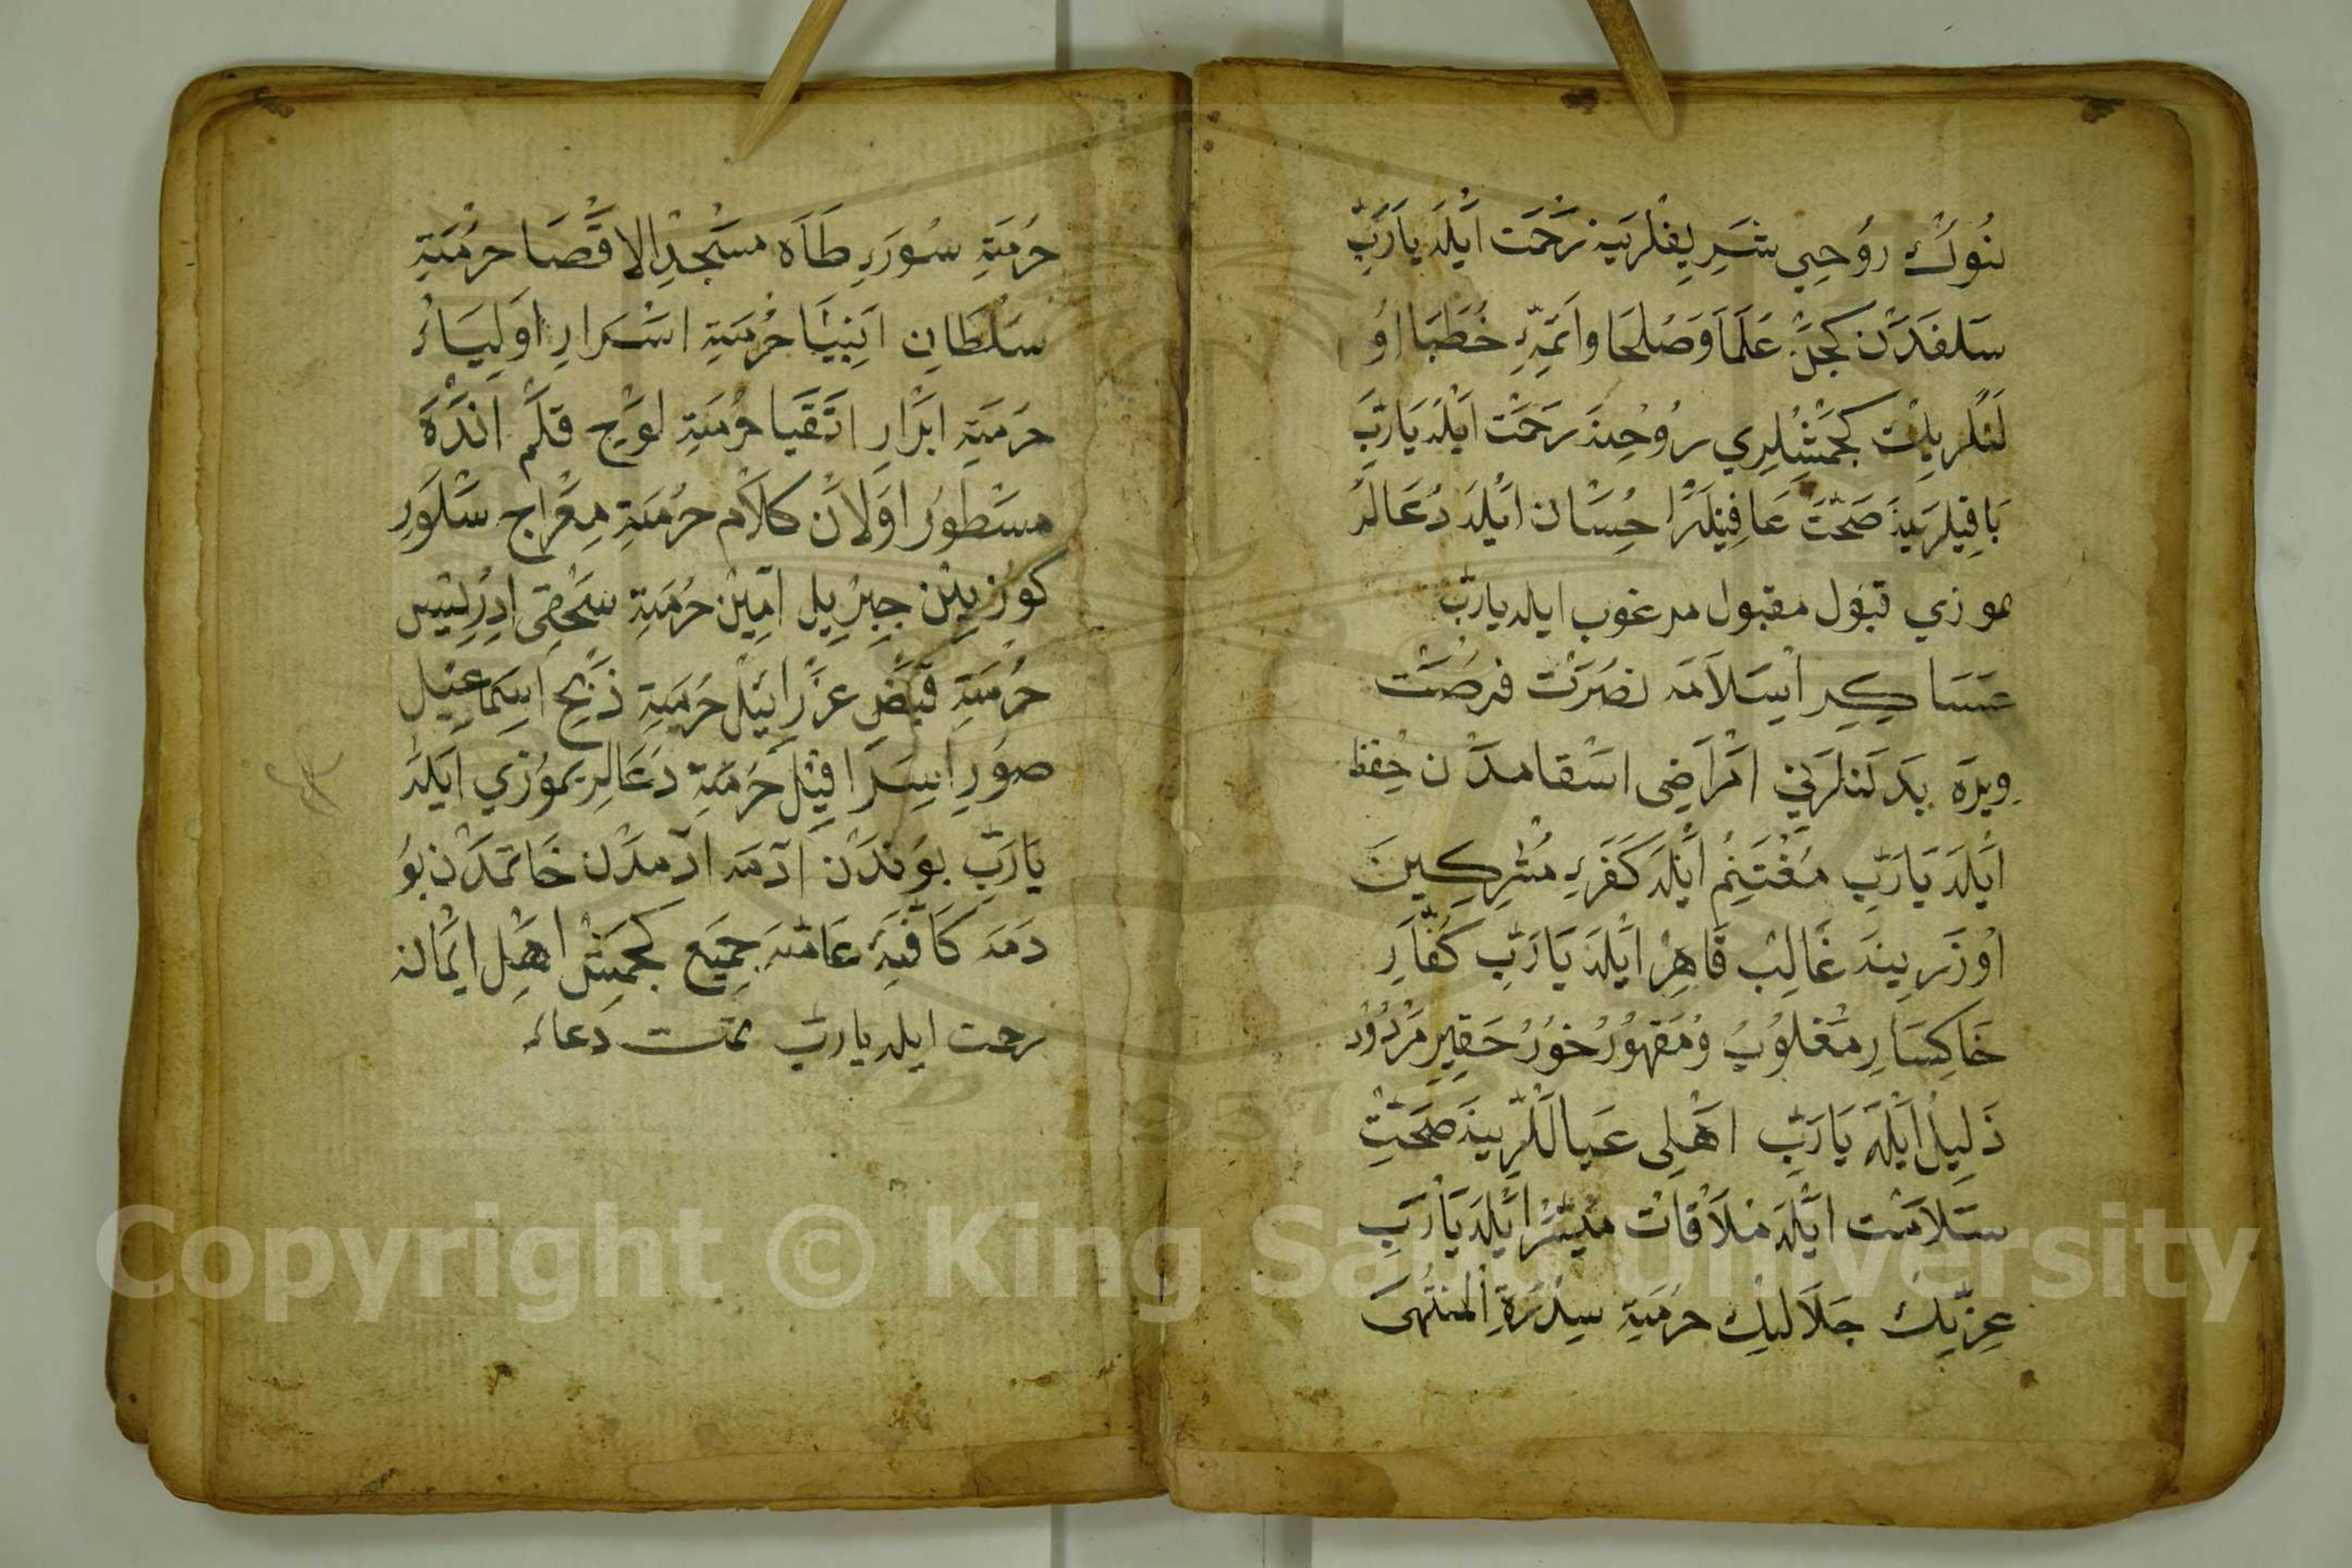 نُوكْ رُوحِي شَرِيفْلَرِينَه رَحْمَتْ اَيْلَه يَارَبِّ
سَلَفْدَنْ كَجَنْ عُلَمَا وَصُلَحَا وَاَئِمَّۀِ خُطَبَا اوُ
لَنْلَرِيڭ كَجْمِشْلَرِي رُوحِنَه رَحْمَتْ اَيْلَه يَارَبِّ
بَاقِيلَرِينَه صَحَّتْ عَافِيَتْلَرْ اِحْسَانْ اَيْلَه دُعَالَرُ
موزي قبول مقبول مرغوب ايله يارب
عَسَاكِرِ اِسْلَامَه نُصْرَتْ فُرْصَتْ
وِيرَه بَدَنْلَرِنِي اَمْرَاضِى اَسْقَامدَنْ حِفْظ
اَيْلَه يَارَبِّ مُغْتَنِمْ اَيْلَه كَفَرَۀِ مُشْرِكِينَ
اوُزَرِينَه غَالِبْ قَاهِرْ اَيْلَه يَارَبِّ كُفَّارِ
خَاكِسَارِ مَغْلُوبُ وُ مَقْهُورُ خُورُ حَقِيرِ مَرْدُودُ
ذَلِيلْ اَيْلَه يَارَبِّ اَهْلِى عَيَالْلَرِينَه صَحَّتِ
سَلَامَتْ اَيْلَه مُلَاقَاتْ مُيَسَّرْ اَيْلَه يَارَبِّ
عِزِّتِكْ جَلَالِيكْ حُرْمَتِ سِدْرَةِ الْمُنْتَهَى
حُرْمَتِ سُورَۀِ طَاَه مَسْجِدِ الاَقْصَا حُرْمَتِ
سُلْطَانِ اَنْبِيَا حُرْمَتِ اَسْرَارِ اَوْلِيَاءُ
حُرْمَتِ اَبْرَارِ اَتْقِيَا حُرْمَتِ لَوْحِ قَلَمْ اَنْدَه
مَسْطُورْ اوَلَانْ كَلَامْ حُرْمَتِ مِعْرَاجْ سَلَوَر
كُوزِينِنْ جِبْرِيلِ اَمِينْ حُرْمَتِ اِدْرِيسْ
حُرْمَتِ قَبْضِ عَزْرَائِيلْ حُرْمَتِ ذَبْحِ اِسْمَاعِيلْ
صُورِ اِسْرَافِيلْ حُرْمَتِ دُعَالَرِيمُوزِي اَيْلَه
يَارَبِّ بُونْدَنْ آدَمَه آدَمدَنْ خَاتَمدَنْ بُو
دَمَه كَافَّه عَامَّه جَمِيعْ كَجْمِشْ اَهْلِ اِيمَانَه
رحمت ايله يارب تمت دعا
Copyright © King Saud University
1957